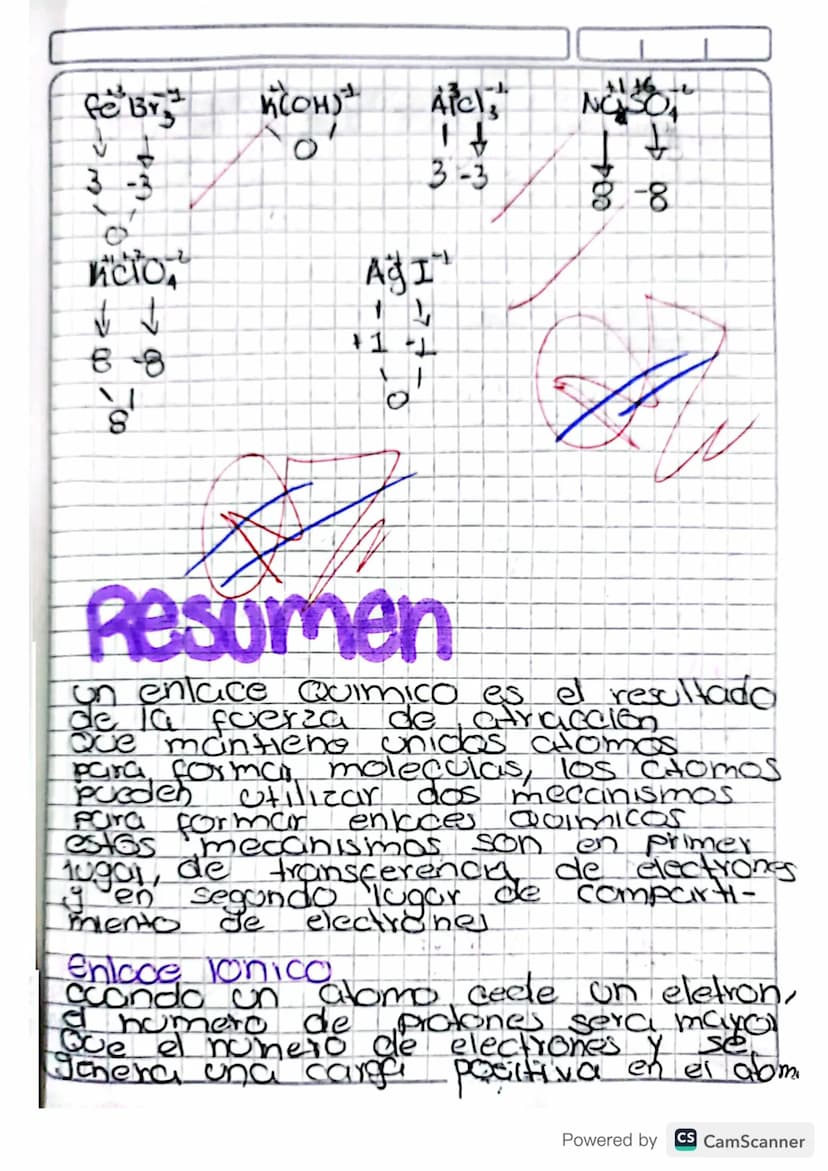 Fe⁺³Br₃⁻¹ K⁺¹(OH)⁻¹ Al⁺³Cl₃⁻¹ Na₂⁺¹S⁺⁶O₄⁻²
↓ ↓ \ / | ↓ ↓ ↓
3 -3 0 3 -3 8 -8
0
K⁺¹Cl⁺⁷O₄⁻² Ag⁺¹I⁻¹
↓ ↓
8 -8 +1 -1
8 0
Resumen
un enlace Quimico es el resultado
de la fuerza de atracción
que mantiene unidos atomos
para formar moleculas, los atomos
pueden utilizar dos mecanismos
para formar enlaces quimicos
estos mecanismos son en primer
lugar, de transferencia de electrones
y en segundo lugar de comparti-
miento de electrones
Enlace Ionico
cuando un atomo cede un eletron,
el numero de protones sera mayor
que el numero de electrones y se
genera una carga positiva en el atom
Powered by CS CamScanner